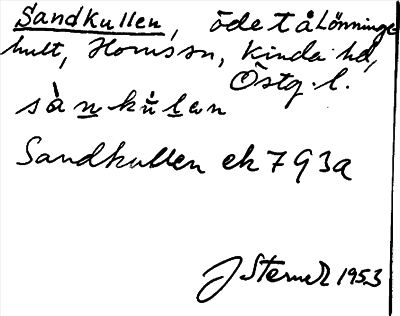 Sandkullen, öde t å Lönninge
hult, Hornsn, Kinda hd,
Östg. l.
sànkůlan
Sandkullen ek 793a
J Sterner 1953